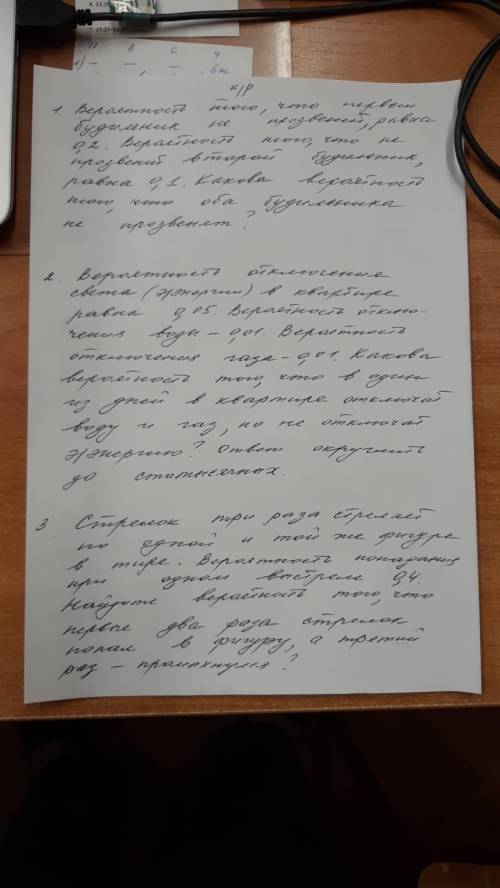 к/р
1. Вероятность того, что первый
будильник не прозвенит, равна
0,2. Вероятность того, что не
прозвенит второй будильник,
равна 0,1. Какова вероятность
того, что оба будильника
не прозвенят?
2. Вероятность отключения
света (э/энергии) в квартире
равна 0,05. Вероятность отклю-
чения воды - 0,01. Вероятность
отключения газа - 0,01. Какова
вероятность того, что в один
из дней в квартире отключат
воду и газ, но не отключат
э/энергию? Ответ округлить
до стотысячных.
3 Стрелок три раза стреляет
по одной и той же фигуре
в тире. Вероятность попадания
при одном выстреле 0,4.
Найдите вероятность того, что
первые два раза стрелок
попал в фигуру, а третий
раз - промахнулся?